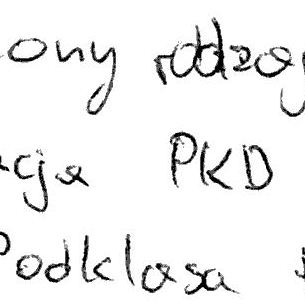 ony rodzaj
acja PKD
Podklasa